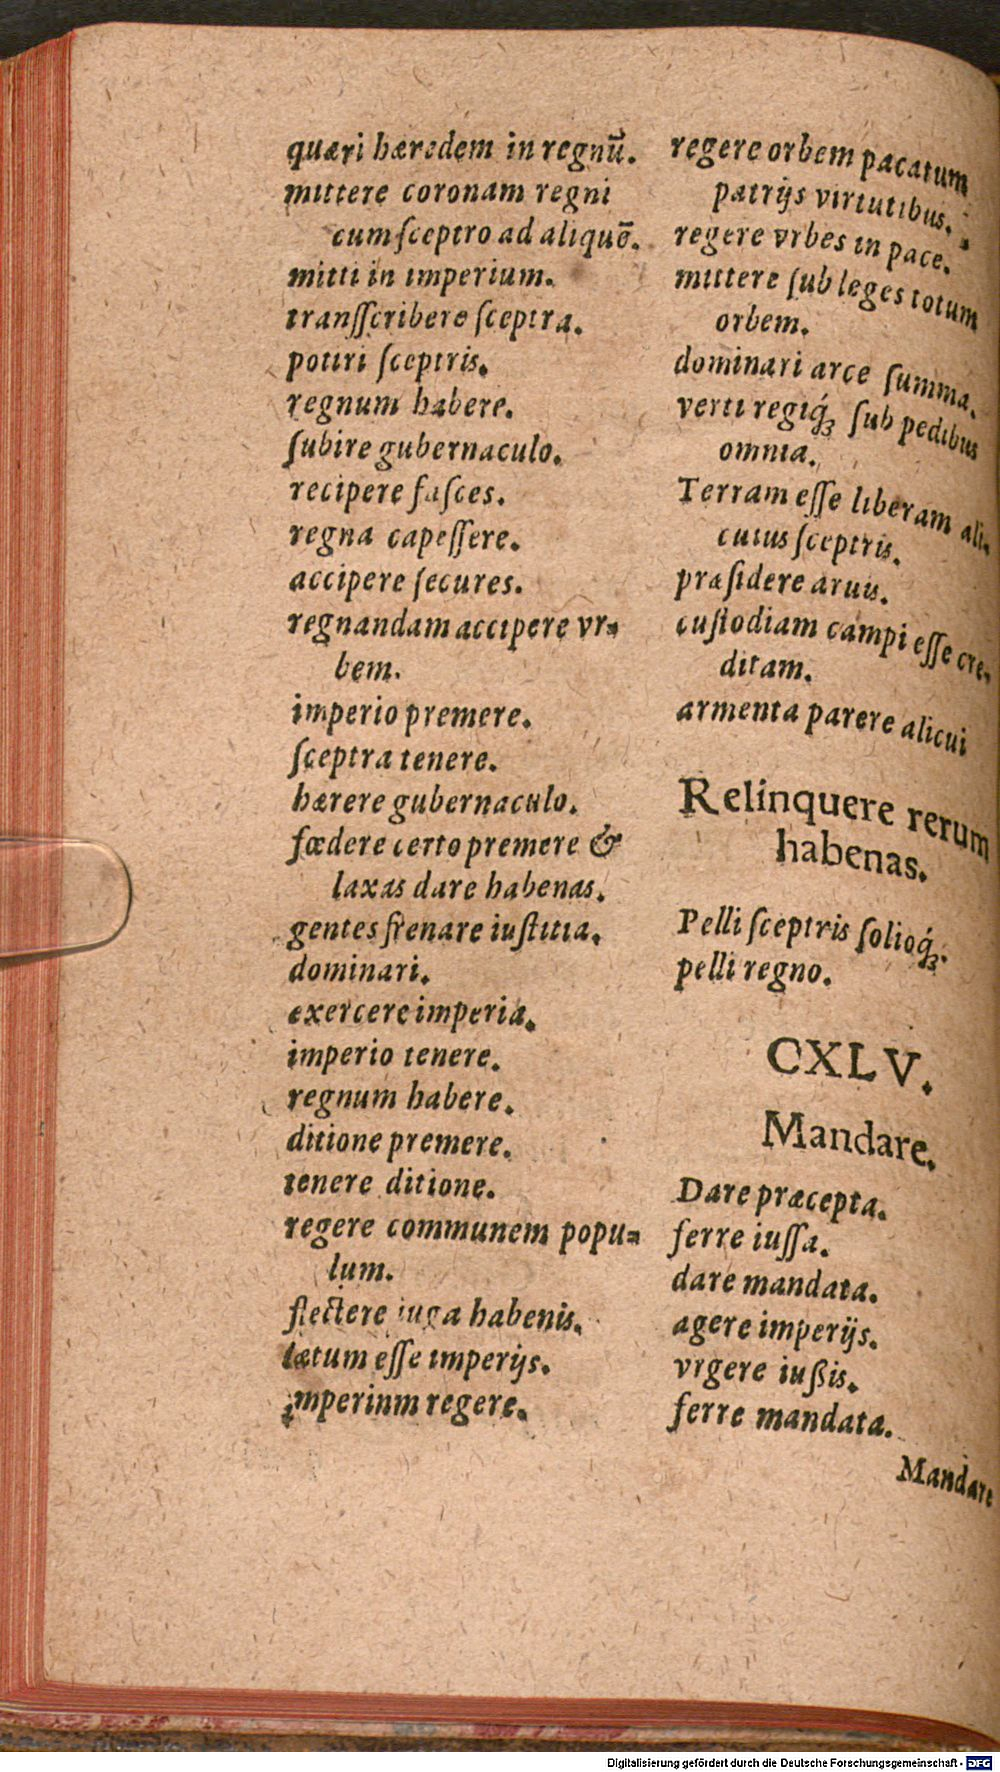 quæri hæredem in regnū.
mittere coronam regni
cum ſceptro ad aliquē.
mitti in imperium.
tranſſcribere ſceptra.
potiri ſceptris.
regnum habere.
ſubire gubernaculo.
recipere faſces.
regna capeſſere.
accipere ſecures.
regnandam accipere vr⸗
bem.
imperio premere.
ſceptra tenere.
hærere gubernaculo.
fœdere certo premere &
laxas dare habenas.
gentes frenare iuſtitia.
dominari.
exercere imperia.
imperio tenere.
regnum habere.
ditione premere.
tenere ditione.
regere communem popu⸗
lum.
flectere iuga habenis.
lætum eſſe imperijs.
imperinm regere.
regere orbem pacatum
patrijs virtutibus.
regere vrbes in pace.
mittere ſub leges totum
orbem.
dominari arce ſumma.
verti regiq́; ſub pedibus
omnia.
Terram eſſe liberam ali⸗
cuius ſceptris.
præſidere aruis.
cuſtodiam campi eſſe cre⸗
ditam.
armenta parere alicui
Relinquere rerum
habenas.
Pelli ſceptris ſolioq́;.
pelli regno.
CXLV.
Mandare.
Dare præcepta.
ferre iuſſa.
dare mandata.
agere imperijs.
vrgere iußis.
ferre mandata.
Mandare
Digitalisierung gefördert durch die Deutsche Forschungsgemeinschaft - DFG